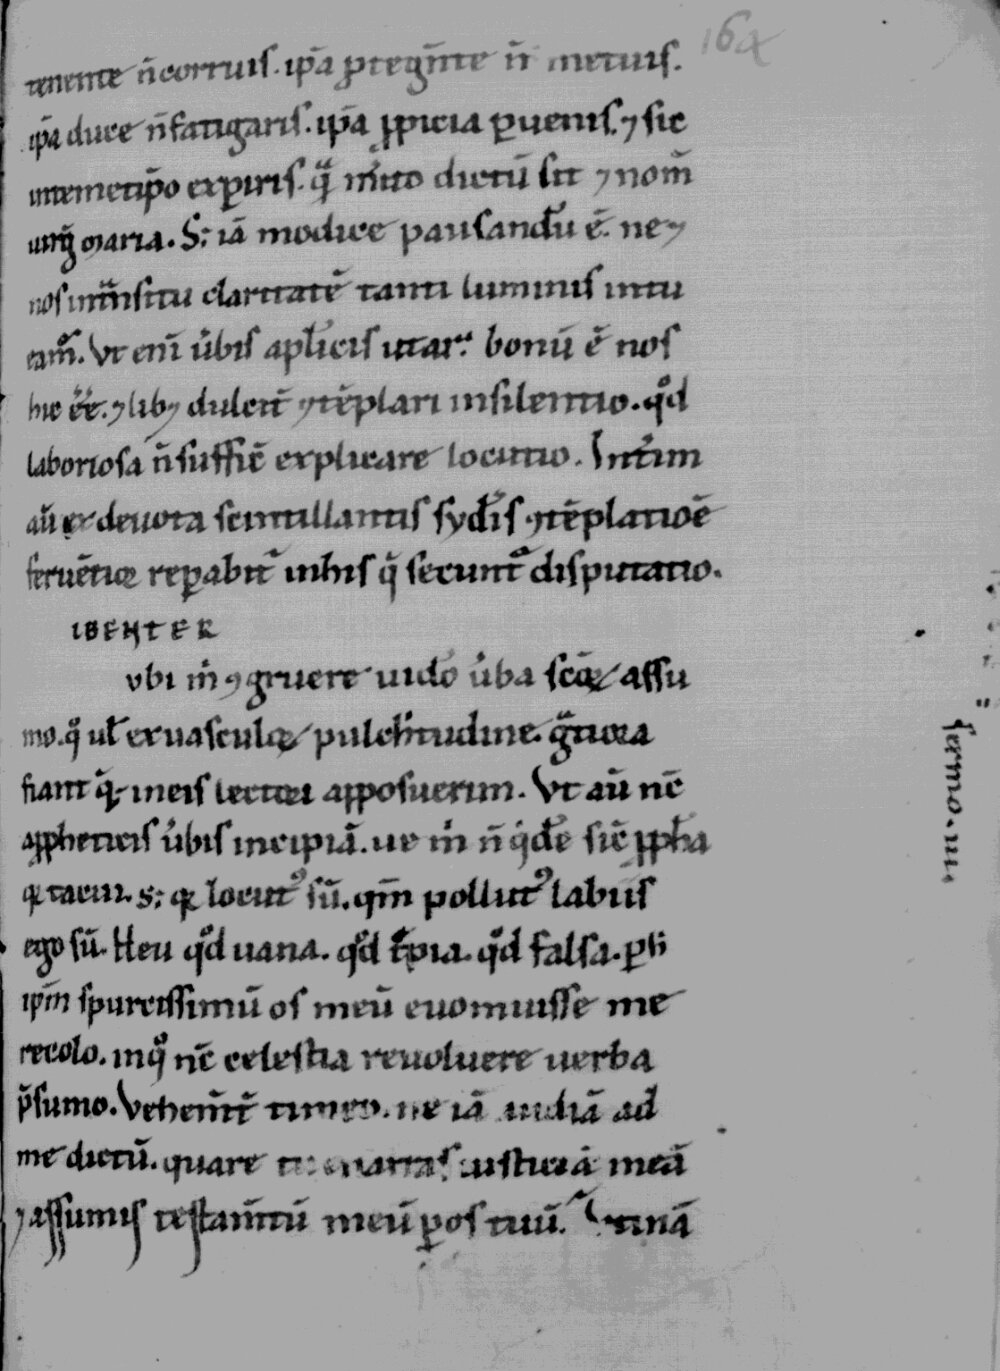 16a
tenente n̄ corruis. ip̄a ꝓtegn̄te n̄ metuis.
ip̄a duce n̄ fatigaris. ip̄a ꝓpicia ꝑuenis. ⁊ sic
in temetip̄o exꝑiris. q̄ m̓ito dictū sit ⁊ nom̄
uirḡ maria. S; iā modice pausandū ē. ne ⁊
nos in tn̄situ claritatē tanti luminis intu
eam᷒. Vt eni̅ ūbis apl̓icis utar. bonū ē nos
hic ēē. ⁊ lib⁊ dulcit̄ ꝯtēplari in silentio. qd̓
laboriosa n̄ sufficē explicare locutio. Int̓im
aū ex deuota scintillantis syd̓is ꝯtēplatiōē
feruētioꝛ reꝑabit᷑ in his q̄ secunt᷑ disputatio.
IBENTER
vbi m̓ ꝯgruere uideo ūba scōꝝ assu
mo. q̊ ul̓ ex uasculoꝝ pulch̓itudine. gͣtiora
fiant q̄ meis lectori apposuerim. Vt aū nc̄
a ꝓpheticis ūbis incipiā. ue m̓ n̄ q̓dē sic̄ ꝓph̓a
qꝛ tacui. s; qꝛ locut᷒ sū. qm̄ pollut᷒ labiis
ego sū. Heu qd̓ uana. qd̓ t̓pia. qd̓ falsa. ꝑ h̓
ip̄m spurcissimū os meū euomuisse me
recolo. in q̊ nc̄ celestia reuoluere uerba
p̄sumo. Vehem̄t̄ timeo. ne iā audiā ad
me dictū. quare tu enarras iusticiā meā
⁊ assumis testam̄tū meū ꝑ os tuū. Vtinā
sermo. iii.